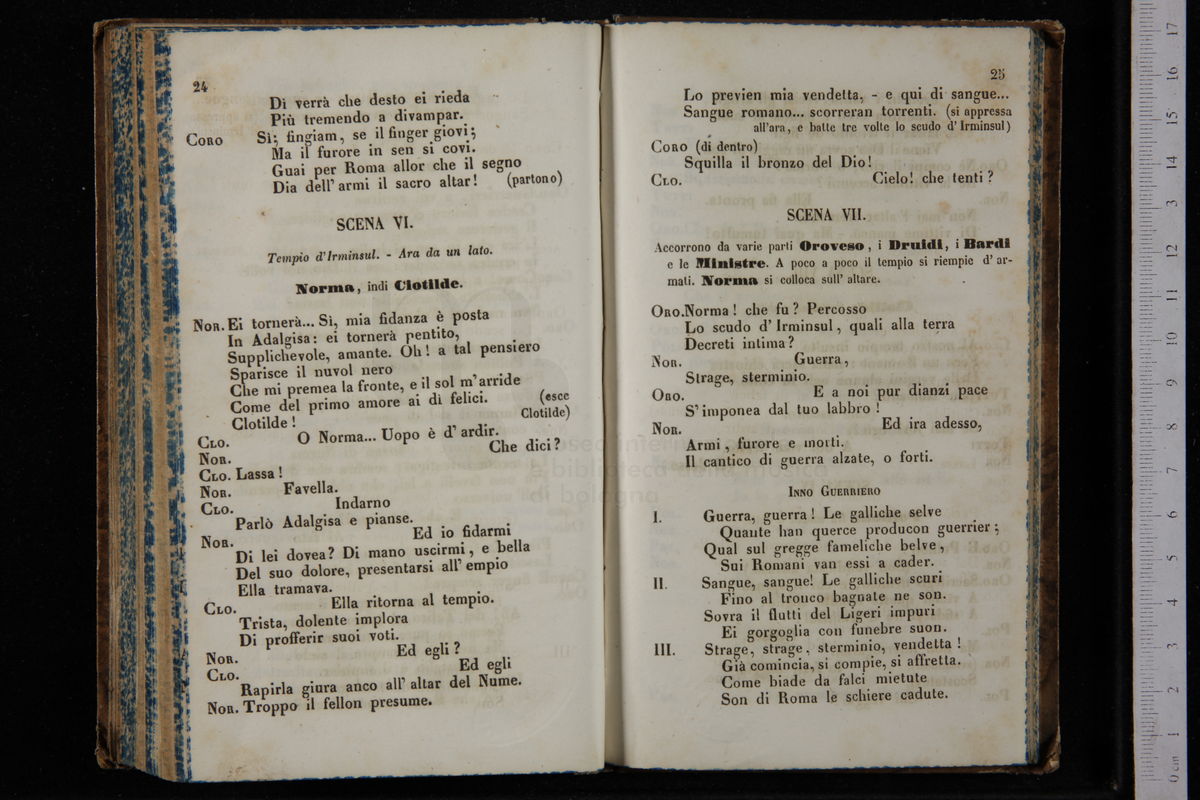 24
Di verrà che desto ei rieda
Più tremendo a divampar.
CORO Sì; fingiam, se il finger giovi;
Ma il furore in sen si covi.
Guai per Roma allor che il segno
Dia dell' armi il sacro altar! (partono)
SCENA VI.
Tempio d'Irminsul. - Ara da un lato.
Norma, indi Clotilde.
NOR. Ei tornerà... Sì, mia fidanza è posta
In Adalgisa: ei tornerà pentito,
Supplichevole, amante. Oh! a tal pensiero
Sparisce il nuvol nero
Che mi premea la fronte, e il sol m'arride
Come del primo amore ai dì felici. (esce
Clotilde)
Clotilde!
CLO. O Norma... Uopo è d' ardir.
NOR. Che dici?
CLO. Lassa!
NOR. Favella.
CLO. Indarno
Parlò Adalgisa e pianse.
NOR. Ed io fidarmi
Di lei dovea? Di mano uscirmi, e bella
Del suo dolore, presentarsi all' empio
Ella tramava.
CLO. Ella ritorna al tempio.
Trista, dolente implora
Di profferir suoi voti.
NOR. Ed egli?
CLO. Ed egli
Rapirla giura anco all' altar del Nume.
NOR. Troppo il fellon presume.
25
Lo previen mia vendetta, - e qui di sangue...
Sangue romano... scorreran torrenti. (si appressa
all'ara, e batte tre volte lo scudo d' Irminsul)
CORO (di dentro)
Squilla il bronzo del Dio!
CLO. Cielo! che tenti?
SCENA VII.
Accorrono da varie parti Oroveso, i Druidi, i Bardi
e le Ministre. A poco a poco il tempio si riempie d' ar-
mati. Norma si colloca sull' altare.
ORO. Norma! che fu? Percosso
Lo scudo d' Irminsul, quali alla terra
Decreti intima?
NOR. Guerra,
Strage, sterminio.
ORO. E a noi pur dianzi pace
S' imponea dal tuo labbro!
NOR. Ed ira adesso,
Armi, furore e morti.
Il cantico di guerra alzate, o forti.
INNO GUERRIERO
I. Guerra, guerra! Le galliche selve
Quante han querce producon guerrier;
Qual sul gregge fameliche belve,
Sui Romani van essi a cader.
II. Sangue, sangue! Le galliche scuri
Fino al tronco bagnate ne son.
Sovra il flutti del Ligeri impuri
Ei gorgoglia con funebre suon.
III. Strage, strage, sterminio, vendetta!
Già comincia, si compie, si affretta.
Come biade da falci mietute
Son di Roma le schiere cadute.
0 cm 1 2 3 4 5 6 7 8 9 10 11 12 13 14 15 16 17